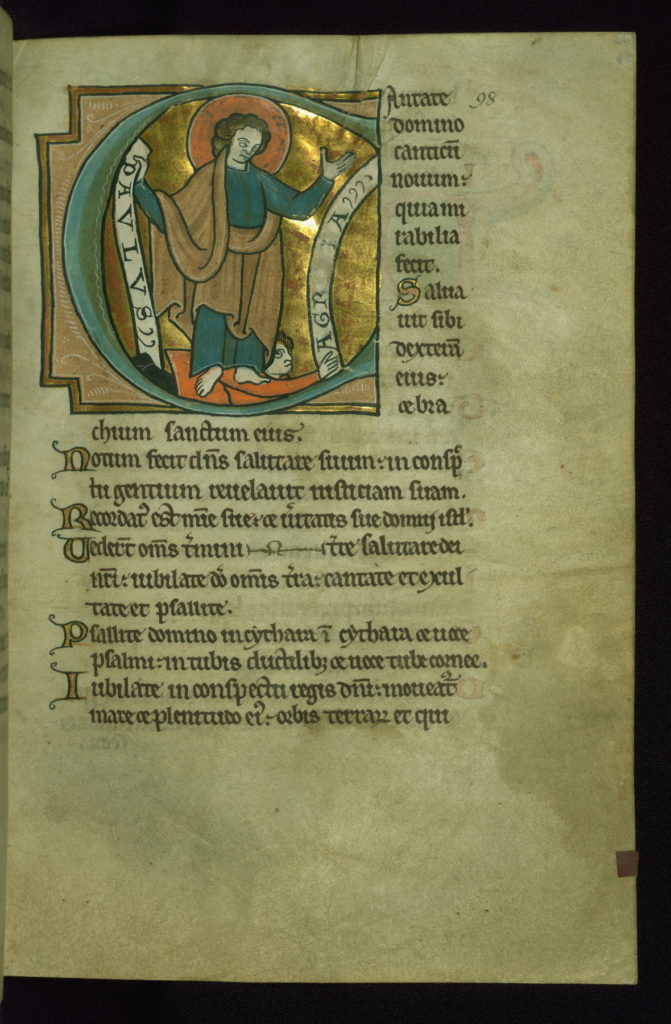 PAVLVS
AGRIPPA
Antate 98
domino
canticū
nouum:
quia mi
rabilia
fecit.
Salua
uit sibi
dexterā
eius:
et bra
chium sanctum eius.
Notum fecit dn̄s salutare suum: in consp̄
tu gentium reuelauit iusticiam suam.
Recordat᷒ est mīe sue: et ūitatis sue domui isrl̄.
Videruͭt om̄s t̄mini t̄re salutare dei
nr̄i: iubilate dō omnis t̄ra: cantate et exul
tate et psallite.
Psallite domino in cythara ī cythara et uoce
psalmi: in tubis ductilibꝫ et uoce tube cornee.
Iubilate in conspectu regis dn̄i: moueat᷑
mare et plenitudo ei᷒: orbis terrarꝝ et qui